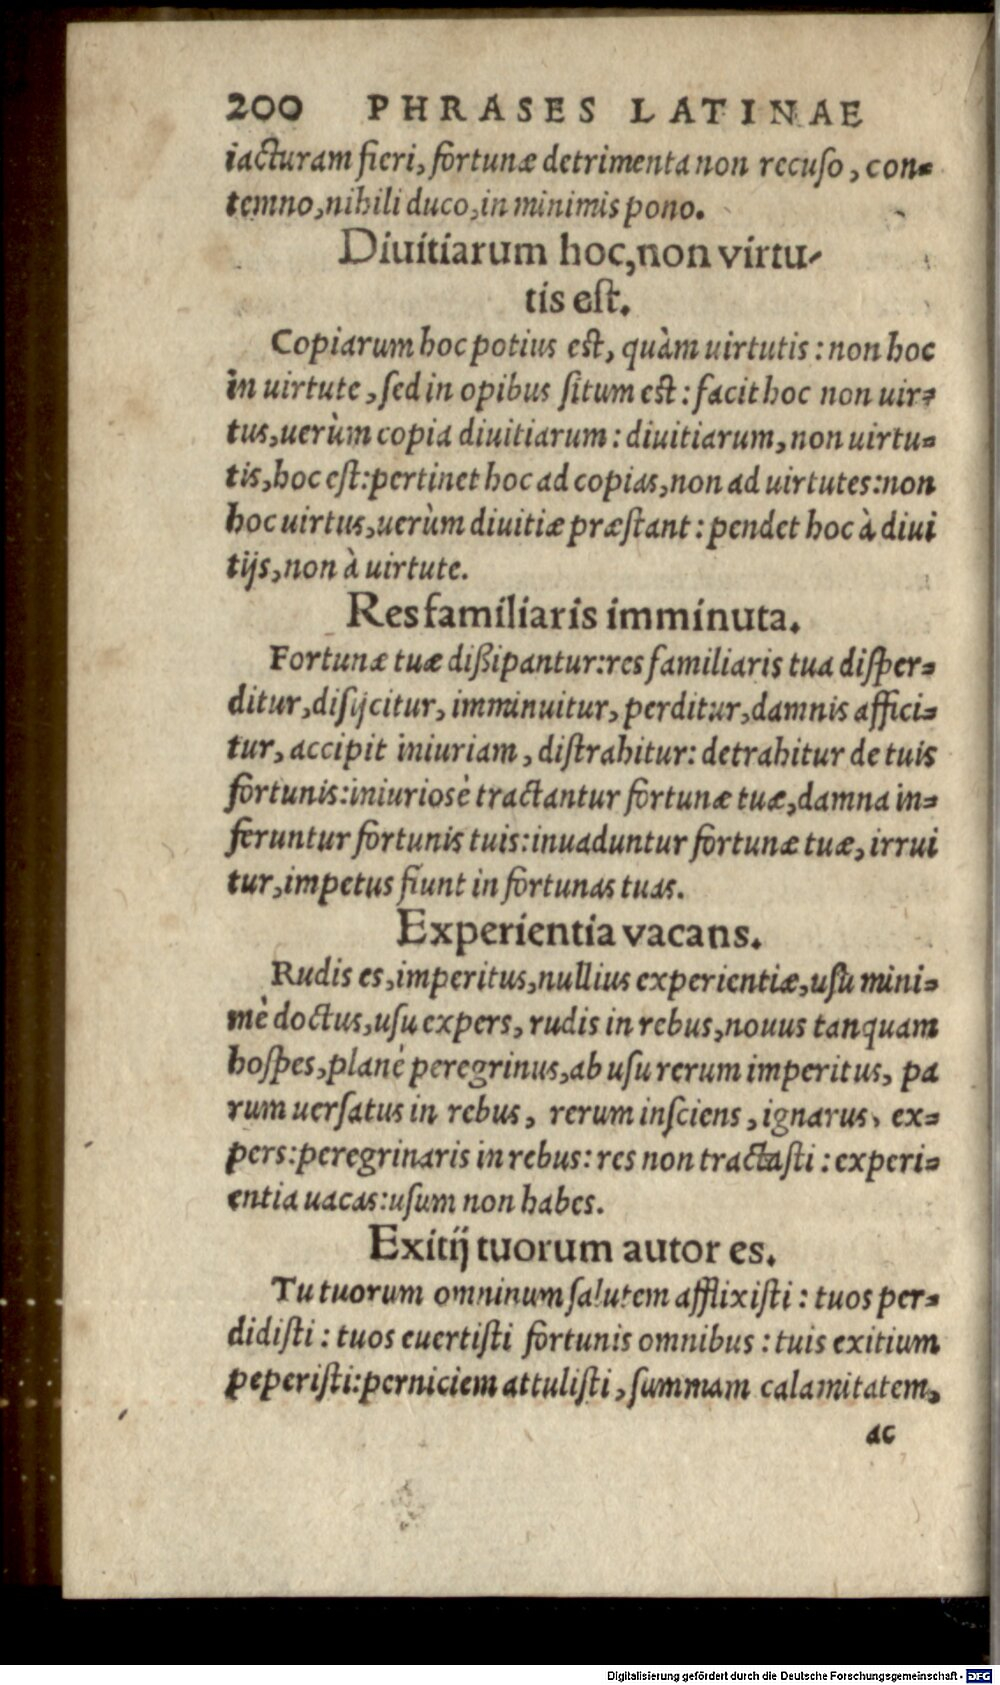 200 PHRASES LATINAE
iacturam fieri, fortunæ detrimenta non recuso, con-
temno, nihili duco, in minimis pono.
Diuitiarum hoc, non virtu-
tis est.
Copiarum hoc potius est, quàm uirtutis: non hoc
in uirtute, sed in opibus situm est: facit hoc non uir-
tus, uerùm copia diuitiarum: diuitiarum, non uirtu-
tis, hoc est: pertinet hoc ad copias, non ad uirtutes: non
hoc uirtus, uerùm diuitiæ præstant: pendet hoc à diui
tijs, non à uirtute.
Res familiaris imminuta.
Fortunæ tuæ dißipantur: res familiaris tua disper-
ditur, disijcitur, imminuitur, perditur, damnis affici-
tur, accipit iniuriam, distrahitur: detrahitur de tuis
fortunis: iniuriosè tractantur fortunæ tuæ, damna in-
feruntur fortunis tuis: inuaduntur fortunæ tuæ, irrui
tur, impetus fiunt in fortunas tuas.
Experientia vacans.
Rudis es, imperitus, nullius experientiæ, usu mini-
mè doctus, usu expers, rudis in rebus, nouus tanquam
hospes, planè peregrinus, ab usu rerum imperitus, pa
rum uersatus in rebus, rerum insciens, ignarus, ex-
pers: peregrinaris in rebus: res non tractasti: experi-
entia uacas: usum non habes.
Exitij tuorum autor es.
Tu tuorum omninum salutem afflixisti: tuos per-
didisti: tuos euertisti fortunis omnibus: tuis exitium
peperisti: perniciem attulisti, summam calamitatem,
ac
Digitalisierung gefördert durch die Deutsche Forschungsgemeinschaft - DFG